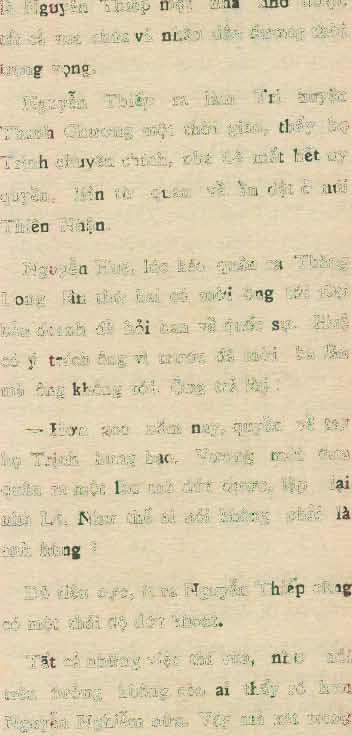 là Nguyễn Thiếp một nhà nho được
tất cả vua chúa và nhân dân đương thời
trọng vọng.
Nguyễn Thiếp ra làm Tri huyện
Thanh Chương một thời gian, thấy họ
Trịnh chuyên chính, nhà Lê mất hết uy
quyền, liền từ quan về ẩn dật ở núi
Thiên Nhận.
Nguyễn Huệ, lúc kéo quân ra Thăng
Long lần thứ hai có mời ông tới
bản doanh để hỏi han về quốc sự. Huệ
có ý trách ông vì trước đã mời ba lần
mà ông không tới. Ông trả lời :
— Hơn 200 năm nay, quyền về tay
họ Trịnh hung bạo. Vương mới đưa
quân ra một lần mà dứt được, lập lại
nhà Lê. Như thế ai nói không phải là
anh hùng ?
Nguyễn Thiếp cũng
có một thái độ dứt khoát.
Tất cả những việc thí như nói
trên không ai thấy rõ hơn
Nguyễn Nghiễm nữa. Vậy mà xét trong